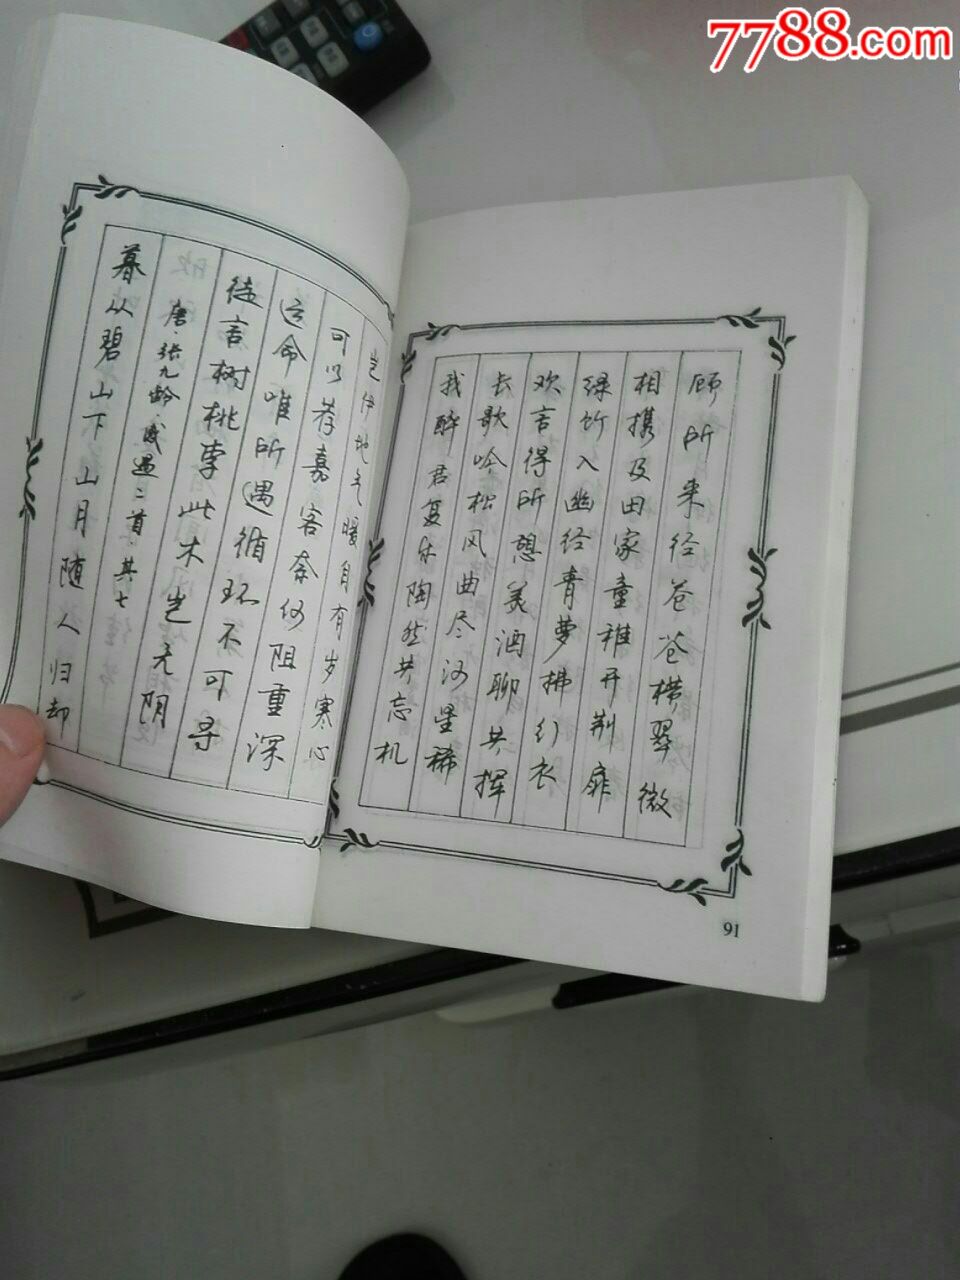 7788.com
岂伊地气暖自有岁寒心
可以荐嘉客奈何阻重深
运命唯所遇循环不可寻
徒言树桃李此木岂无阴
唐·张九龄·感遇二首·其七
暮从碧山下山月随人归却
顾所来径苍苍横翠微
相携及田家童稚开荆扉
绿竹入幽径青萝拂行衣
欢言得所憩美酒聊共挥
长歌吟松风曲尽河星稀
我醉君复乐陶然共忘机
91